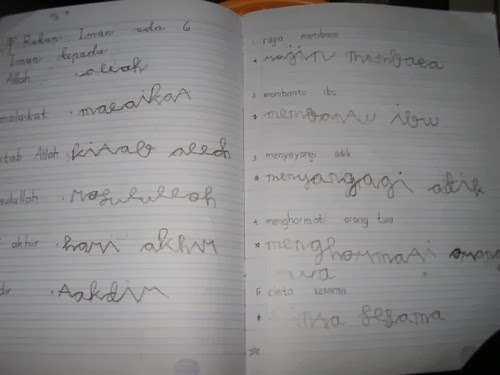 Rukun Iman ada 6
Iman kepada
Allah allah
malaikat malaikat
kitab Allah kitab allah
sulallah Rosulullah
akhir hari akhir
Aakdir
1. rajin membaca
rajin membaca
2. membantu ibu
membantu ibu
3. menyayangi adik
menyangagi adik
4. menghormati orang tua
menghormati orang
tua
5. cinta sesama
sesama